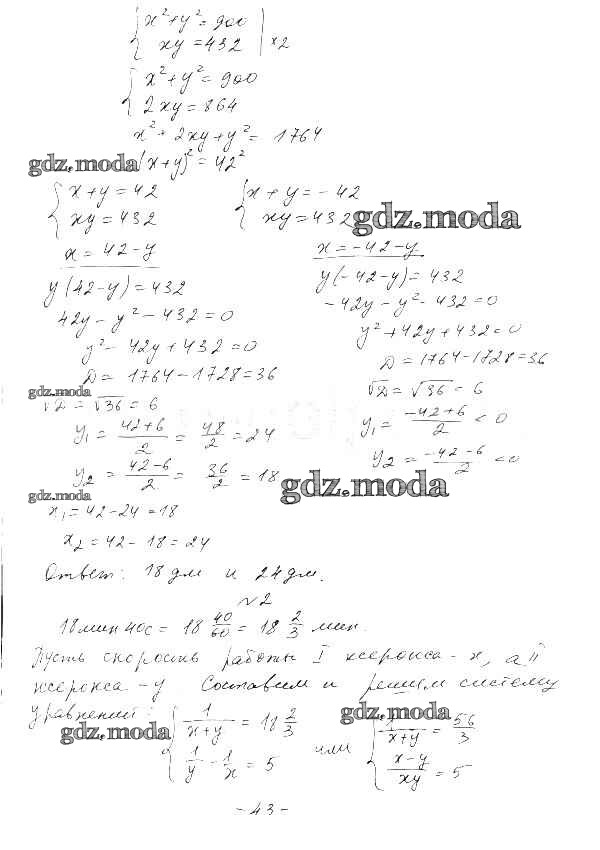 { x² + y² = 900
{ xy = 432 | × 2
{ x² + y² = 900
{ 2xy = 864
x² + 2xy + y² = 1764
gdz.moda (x+y)² = 42²
{ x + y = 42 { x + y = -42
{ xy = 432 { xy = 432 gdz.moda
x = 42 - y x = -42 - y
y(42 - y) = 432 y(-42 - y) = 432
42y - y² - 432 = 0 -42y - y² - 432 = 0
y² - 42y + 432 = 0 y² + 42y + 432 = 0
D = 1764 - 1728 = 36 D = 1764 - 1728 = 36
gdz.moda
√D = √36 = 6 √D = √36 = 6
y₁ = (42+6)/2 = 48/2 = 24 y₁ = (-42+6)/2 < 0
y₂ = (42-6)/2 = 36/2 = 18 y₂ = (-42-6)/2 < 0
gdz.moda gdz.moda
x₁ = 42 - 24 = 18
x₂ = 42 - 18 = 24
Ответ: 18 дм и 24 дм.
№2
18 мин 40 с = 18 40/60 = 18 2/3 мин.
Пусть скорость работы I ксерокса - x, а II
ксерокса - y. Составим и решим систему
уравнений: gdz.moda gdz.moda
{ 1/(x+y) = 18 2/3 или { 1/(x+y) = 56/3
{ 1/y - 1/x = 5 { (x-y)/xy = 5
- 43 -